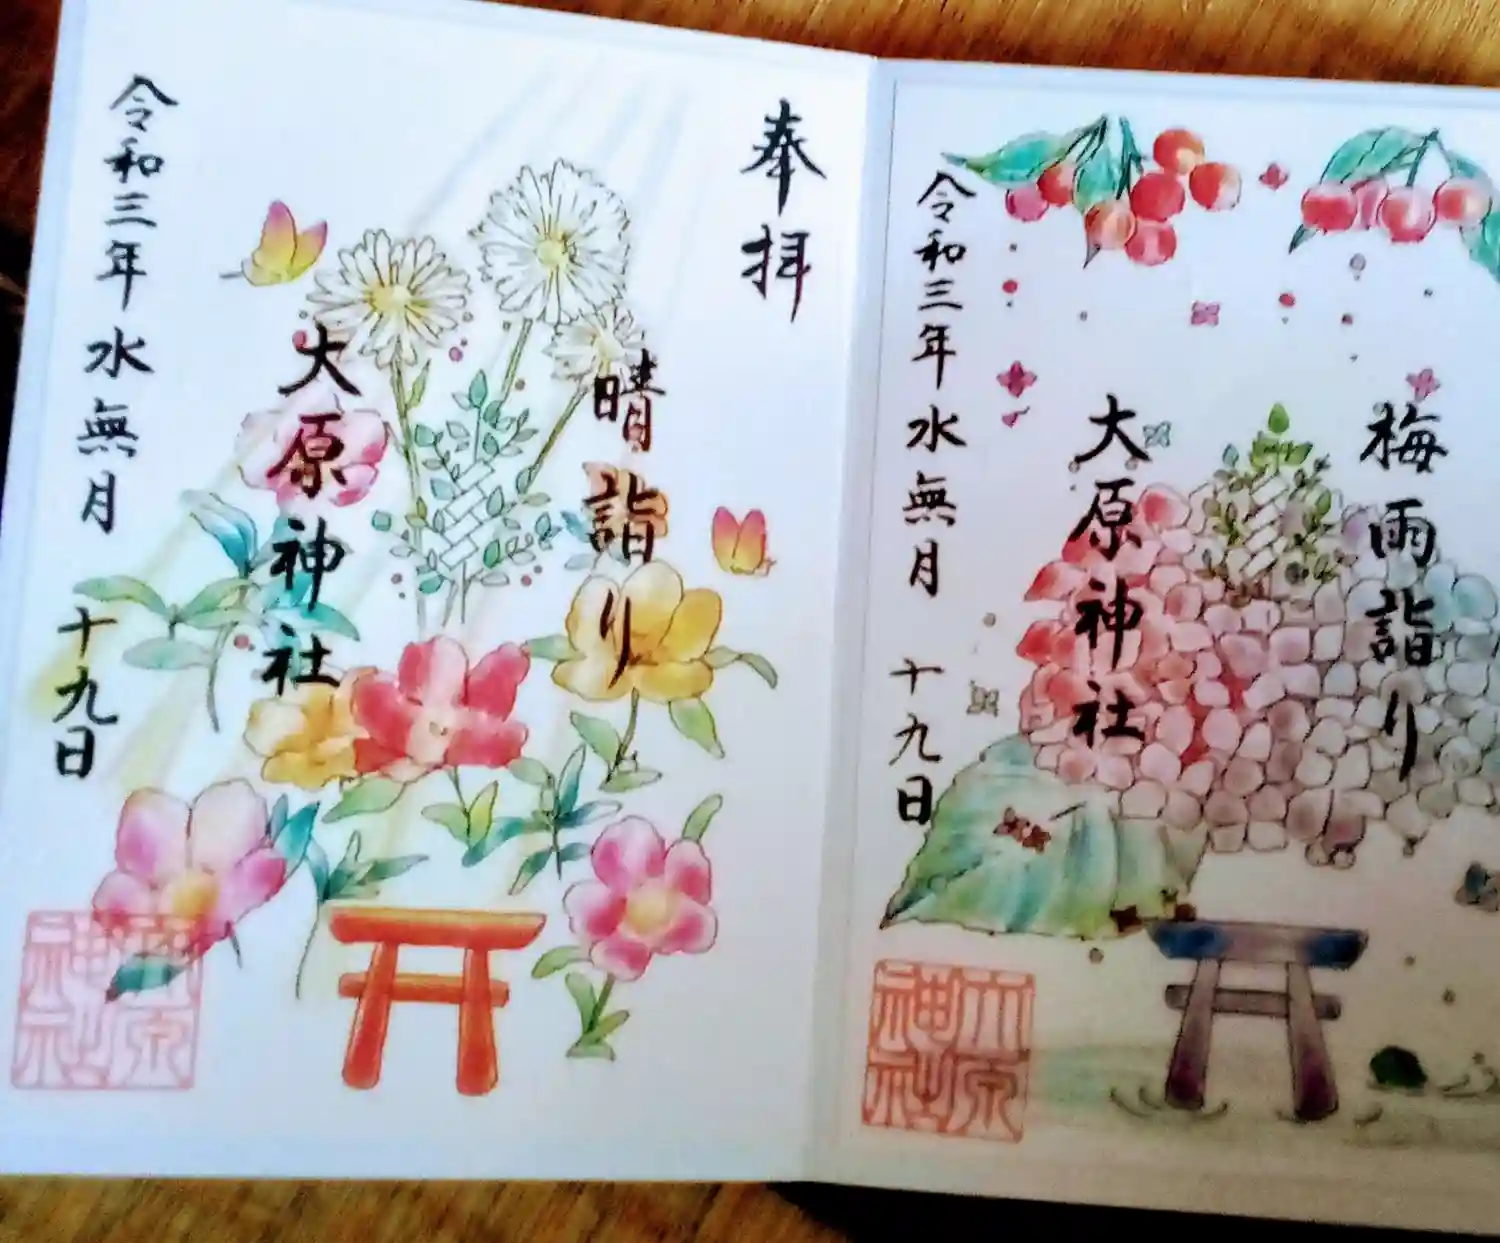 奉拝
晴詣り
大原神社
令和三年水無月十九日
大原神社
梅雨詣り
大原神社
令和三年水無月十九日
大原神社